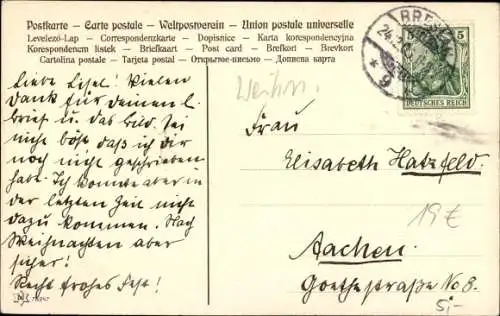 Postkarte – Carte postale – Weltpostverein – Union postale universelle
Levelező-Lap – Correspondenzkarte – Dopisnice – Karta korespondencyjna
Korespondencni listek – Briefkaart – Post card – Brefkort – Brevkort
Cartolina postale – Tarjeta postal – Открытое письмо – Дописна карта
5 5
DEUTSCHES REICH
9
Liebe Lisel! Vielen
Dank für Deinen l.
Brief u. das Bild. Sei
nicht böse daß ich dir
noch nicht geschrieben
habe. Ich konnte aber in
der letzten Zeit nicht
dazu kommen. Nach
Weihnachten aber
sicher!
Recht frohes Fest!
Weihn.
Frau
Elisabeth Hatzfeld.
19€
Aachen.
Goethestraße No 8.
5,-